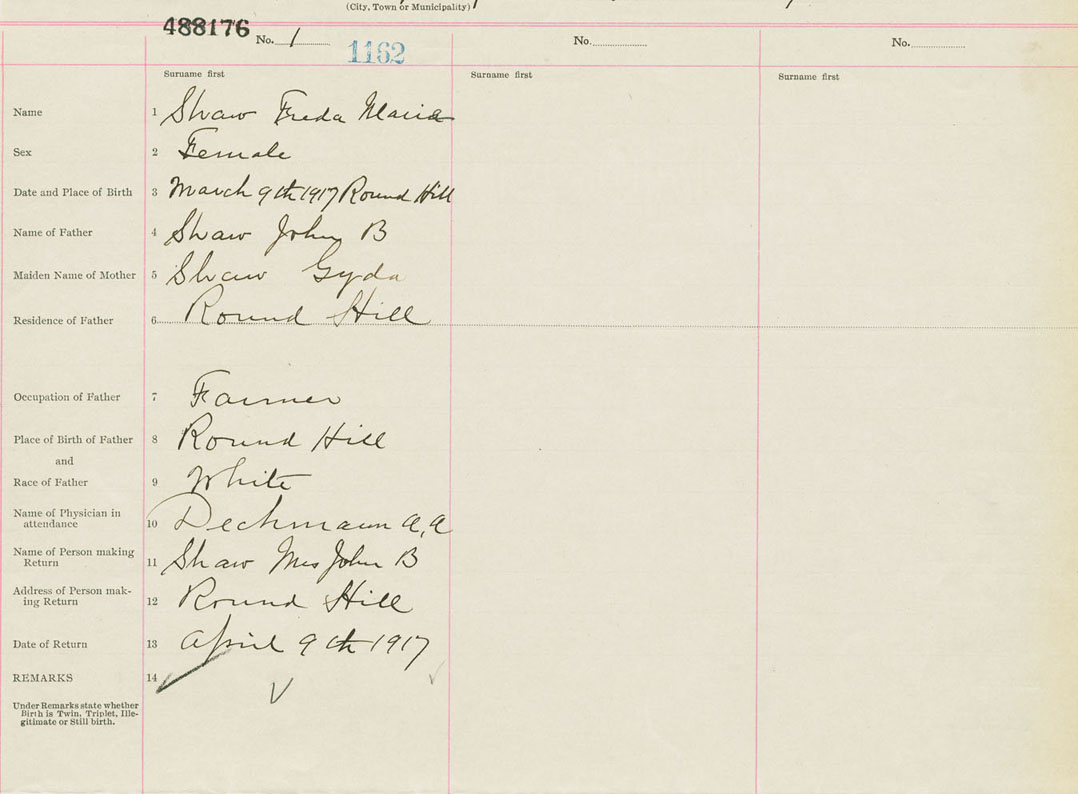 (City, Town or Municipality)
488176 No. 1 1162 No. No.
Surname first Surname first Surname first
Name 1 Shaw Freda Maria
Sex 2 Female
Date and Place of Birth 3 March 9th 1917 Round Hill
Name of Father 4 Shaw John B
Maiden Name of Mother 5 Shaw Gyda
Residence of Father 6 Round Hill
Occupation of Father 7 Farmer
Place of Birth of Father 8 Round Hill
and
Race of Father 9 White
Name of Physician in
attendance 10 Dechmann A, A
Name of Person making
Return 11 Shaw Mrs John B
Address of Person mak-
ing Return 12 Round Hill
Date of Return 13 April 9th 1917
REMARKS 14
Under Remarks state whether
Birth is Twin, Triplet, Ille-
gitimate or Still birth.